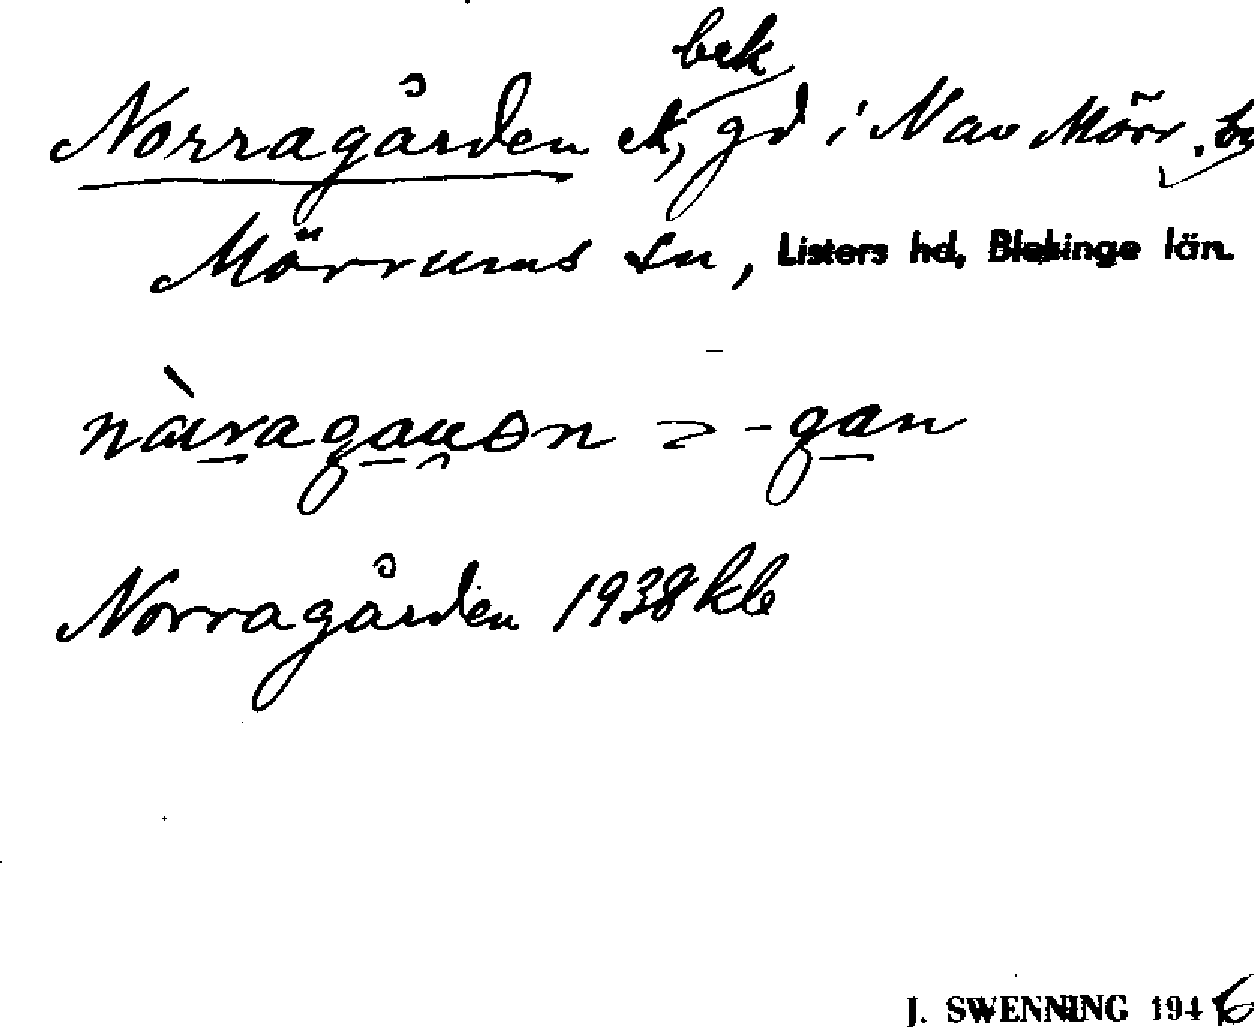 bek
Norragården ek, gd i N av Mörr. by
Mörrums sn, Listers hd, Blekinge län.
nàuragauən = -gan
Norragården 1938 kb
J. SWENNING 1946